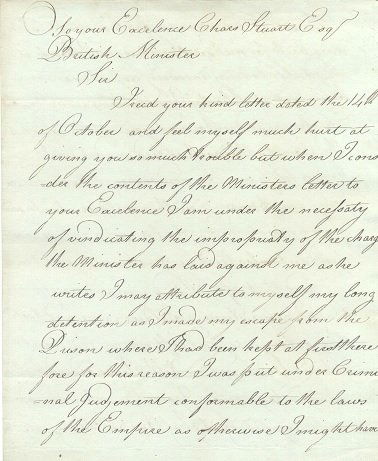 To your Excelence Chars Stuart Esqr
British Minister
Sir
I recd your kind letter dated the 14th
of October and feel myself much hurt at
giving you so much trouble but when I cons
=der the contents of the Ministers letter to
your Excelence I am under the necessaty
of vindicating the impropriaty of the charg
the Minister has laid against me as he
writes I may attribute to myself my long
detention as I made my escape from the
Prison where I had been kept at first there
fore for this reason I was put under Crime
=nal Judgement conformable to the laws
of the Empire as otherwise I might have